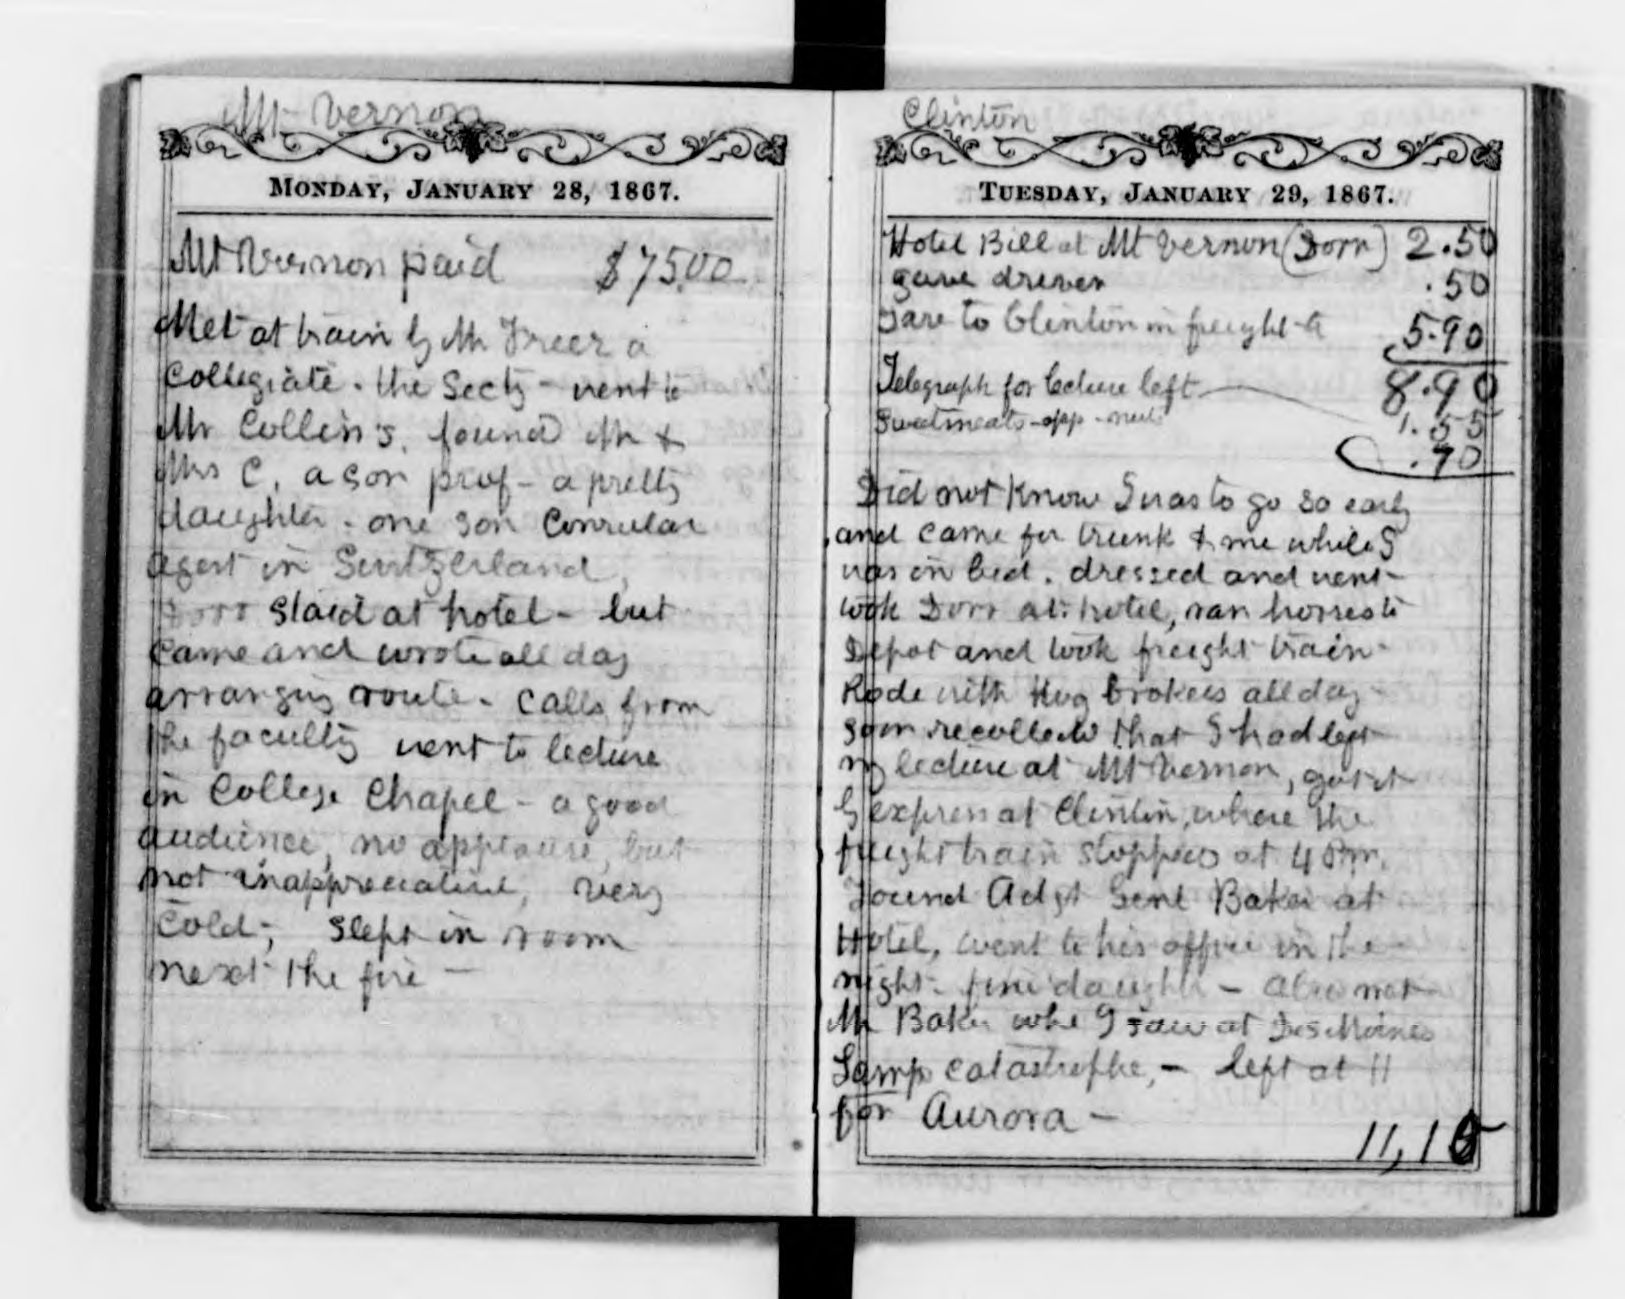 Mt Vernon
MONDAY, JANUARY 28, 1867.
Mt Vernon paid $75.00
Met at train by Mr Freer a
Collegiate - the Secty - went to
Mr Collins, found Mr &
Mrs C, a son prof - a pretty
daughter - one son Consular
agent in Switzerland,
Dorr staid at hotel - but
came and wrote all day
arranging route - calls from
the faculty went to lecture
in College Chapel - a good
audience, no applause, but
not inappreciative, very
cold; slept in room
next the fire -
Clinton
TUESDAY, JANUARY 29, 1867.
Hotel Bill at Mt Vernon (Dorr) 2.50
gave driver .50
Fare to Clinton in freight 5.90
8.90
Telegraph for lecture left 1.55
Sweetmeats - app - .70
Did not know I was to go so early
and came for trunk & me while I
was in bed. dressed and went -
took Dorr at hotel, ran horses to
Depot and took freight train -
Rode with Hog brokers all day -
soon recollected that I had left
my lecture at Mt Vernon, got it
by express at Clinton, where the
freight train stopped at 4 P.m.
Found Adjt Genl Baker at
Hotel, went to his office in the
night - fine daughter - also met
Mr Baker who I saw at Des Moines
Lamp catastrophe, - left at 11
for Aurora -
11,15